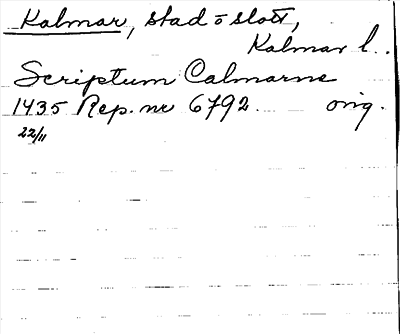 Kalmar, stad o slott,
Kalmar l..
Scriptum Calmarne
1435 Rep. nr 6792. orig.
22/11